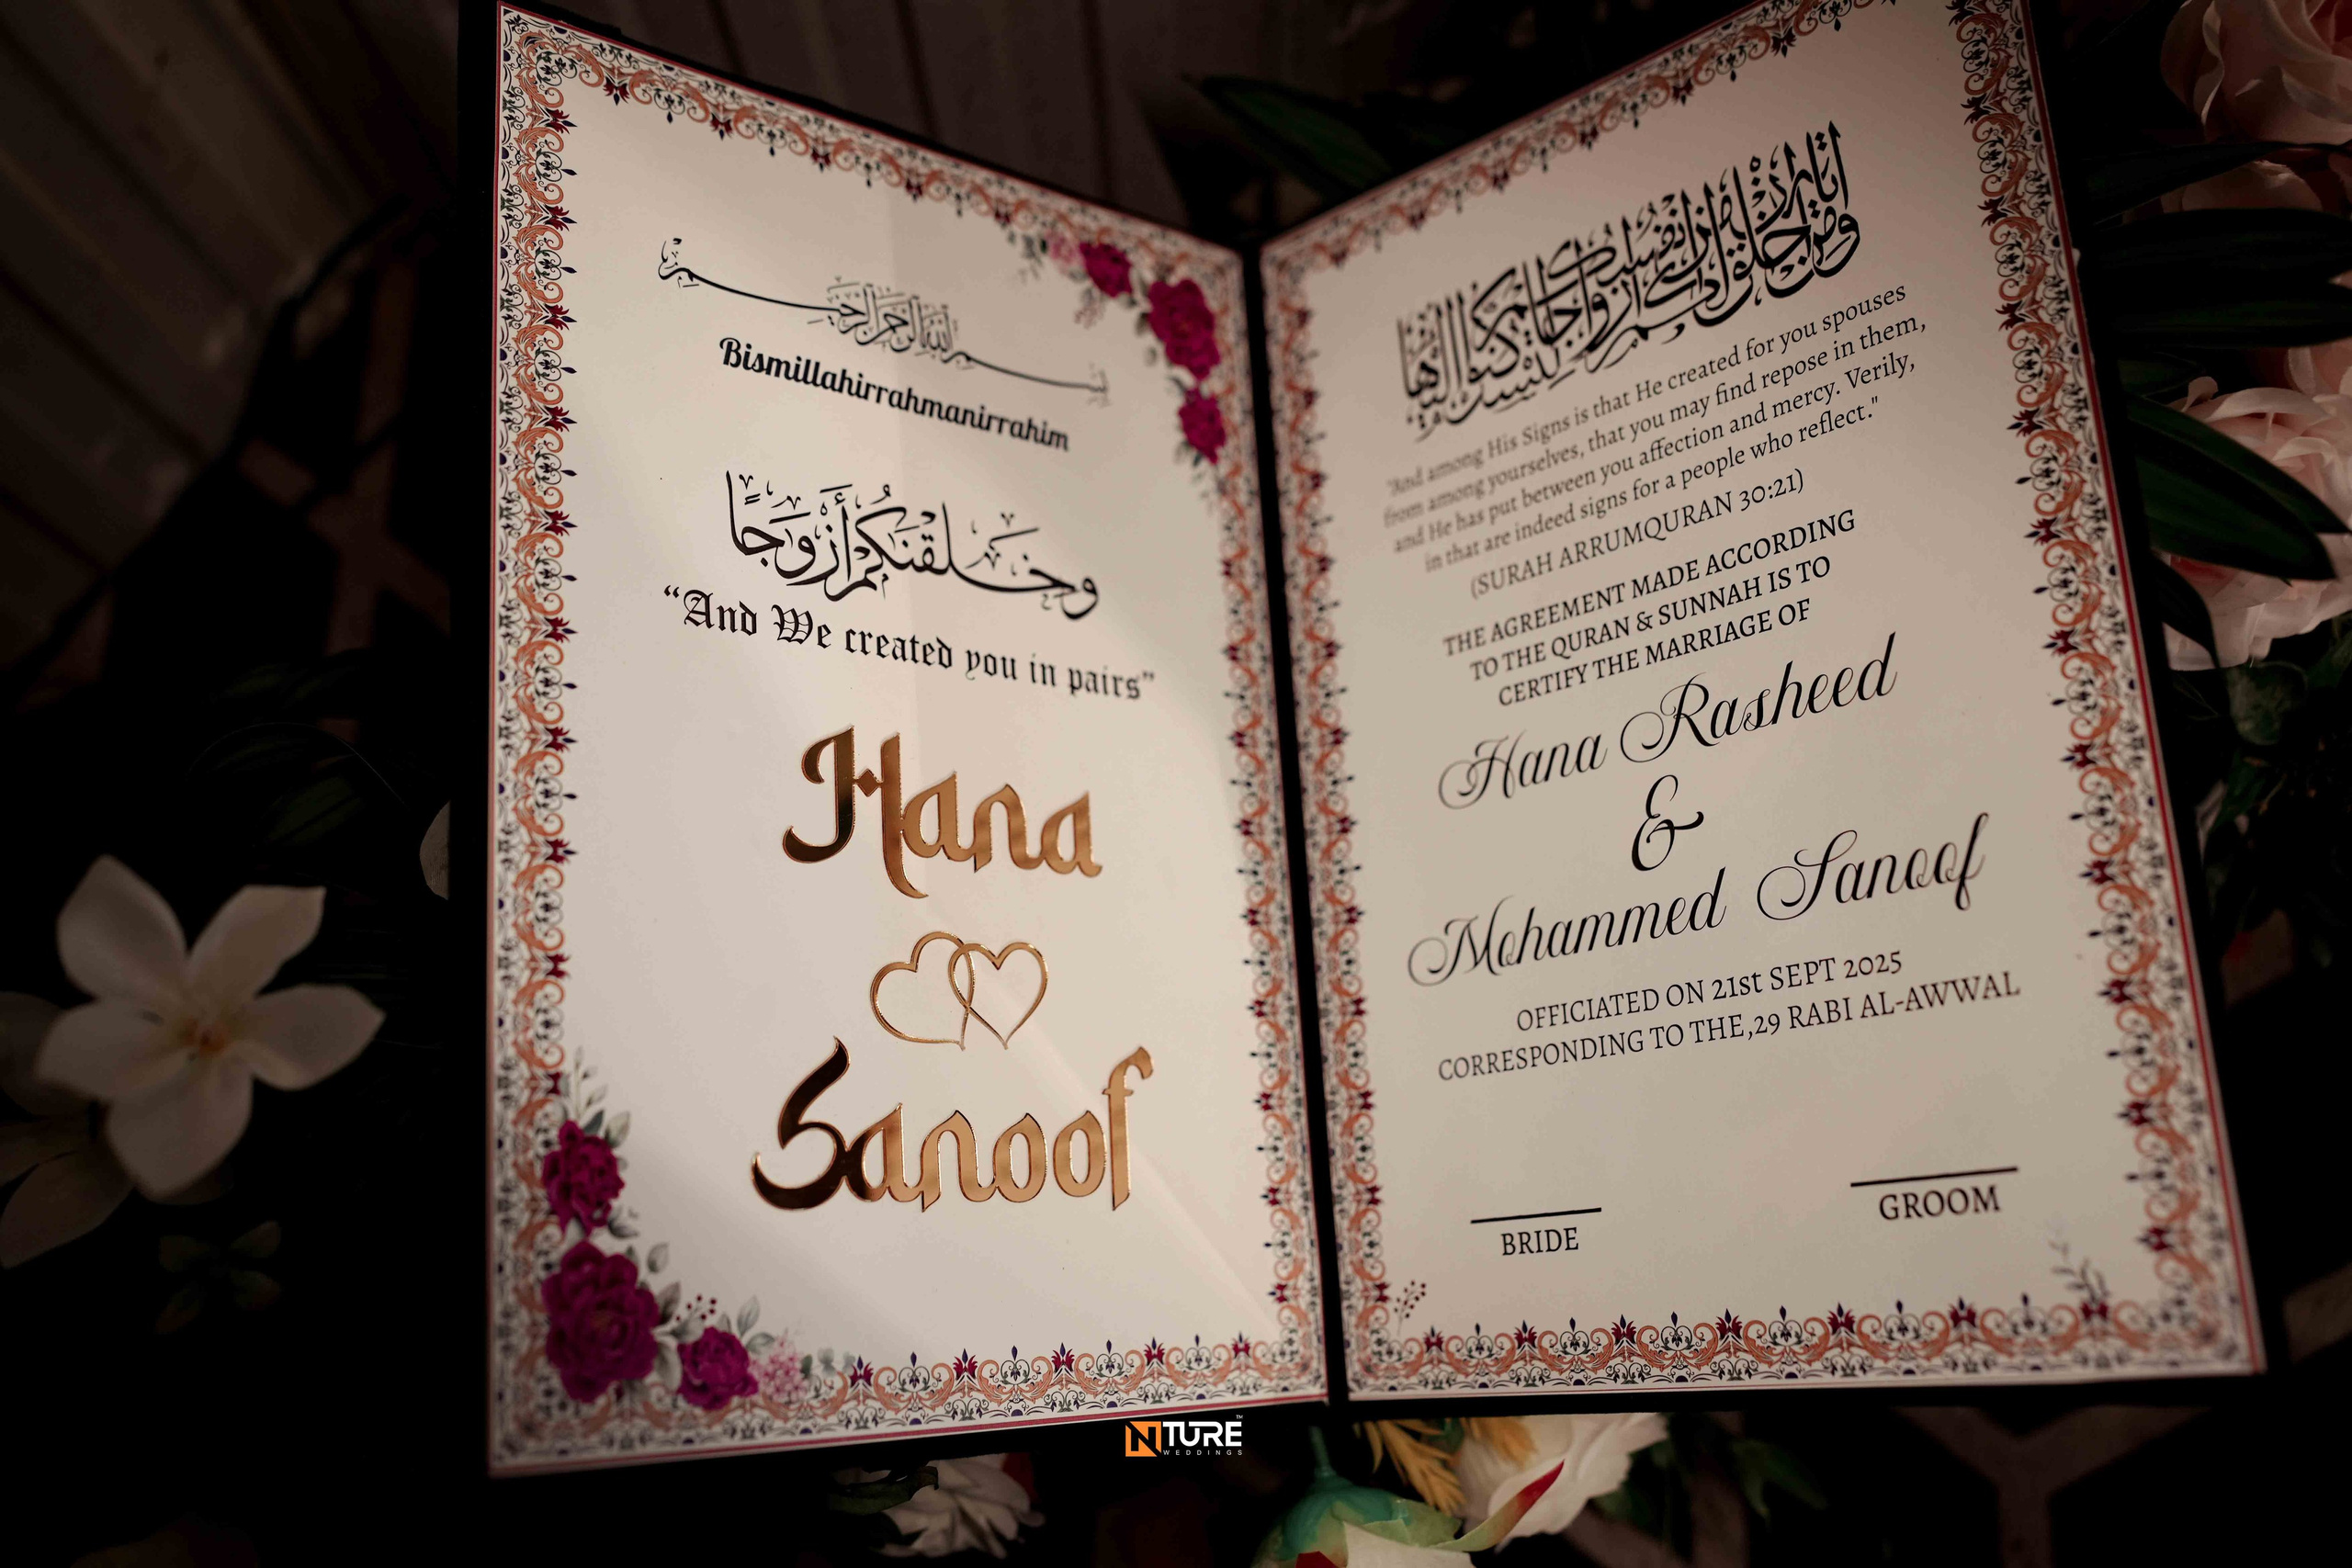 بسم الله الرحمن الرحيم
Bismillahirrahmanirrahim
وخلقنكم أزوجا
“And We created you in pairs”
Hana
Sanoof
ومن آياته أن خلق لكم من أنفسكم أزواجا لتسكنوا إليها
"And among His Signs is that He created for you spouses
from among yourselves, that you may find repose in them,
and He has put between you affection and mercy. Verily,
in that are indeed signs for a people who reflect."
(SURAH ARRUMQURAN 30:21)
THE AGREEMENT MADE ACCORDING
TO THE QURAN & SUNNAH IS TO
CERTIFY THE MARRIAGE OF
Hana Rasheed
&
Mohammed Sanoof
OFFICIATED ON 21st SEPT 2025
CORRESPONDING TO THE,29 RABI AL-AWWAL
BRIDE
GROOM
NTURE™
WEDDINGS